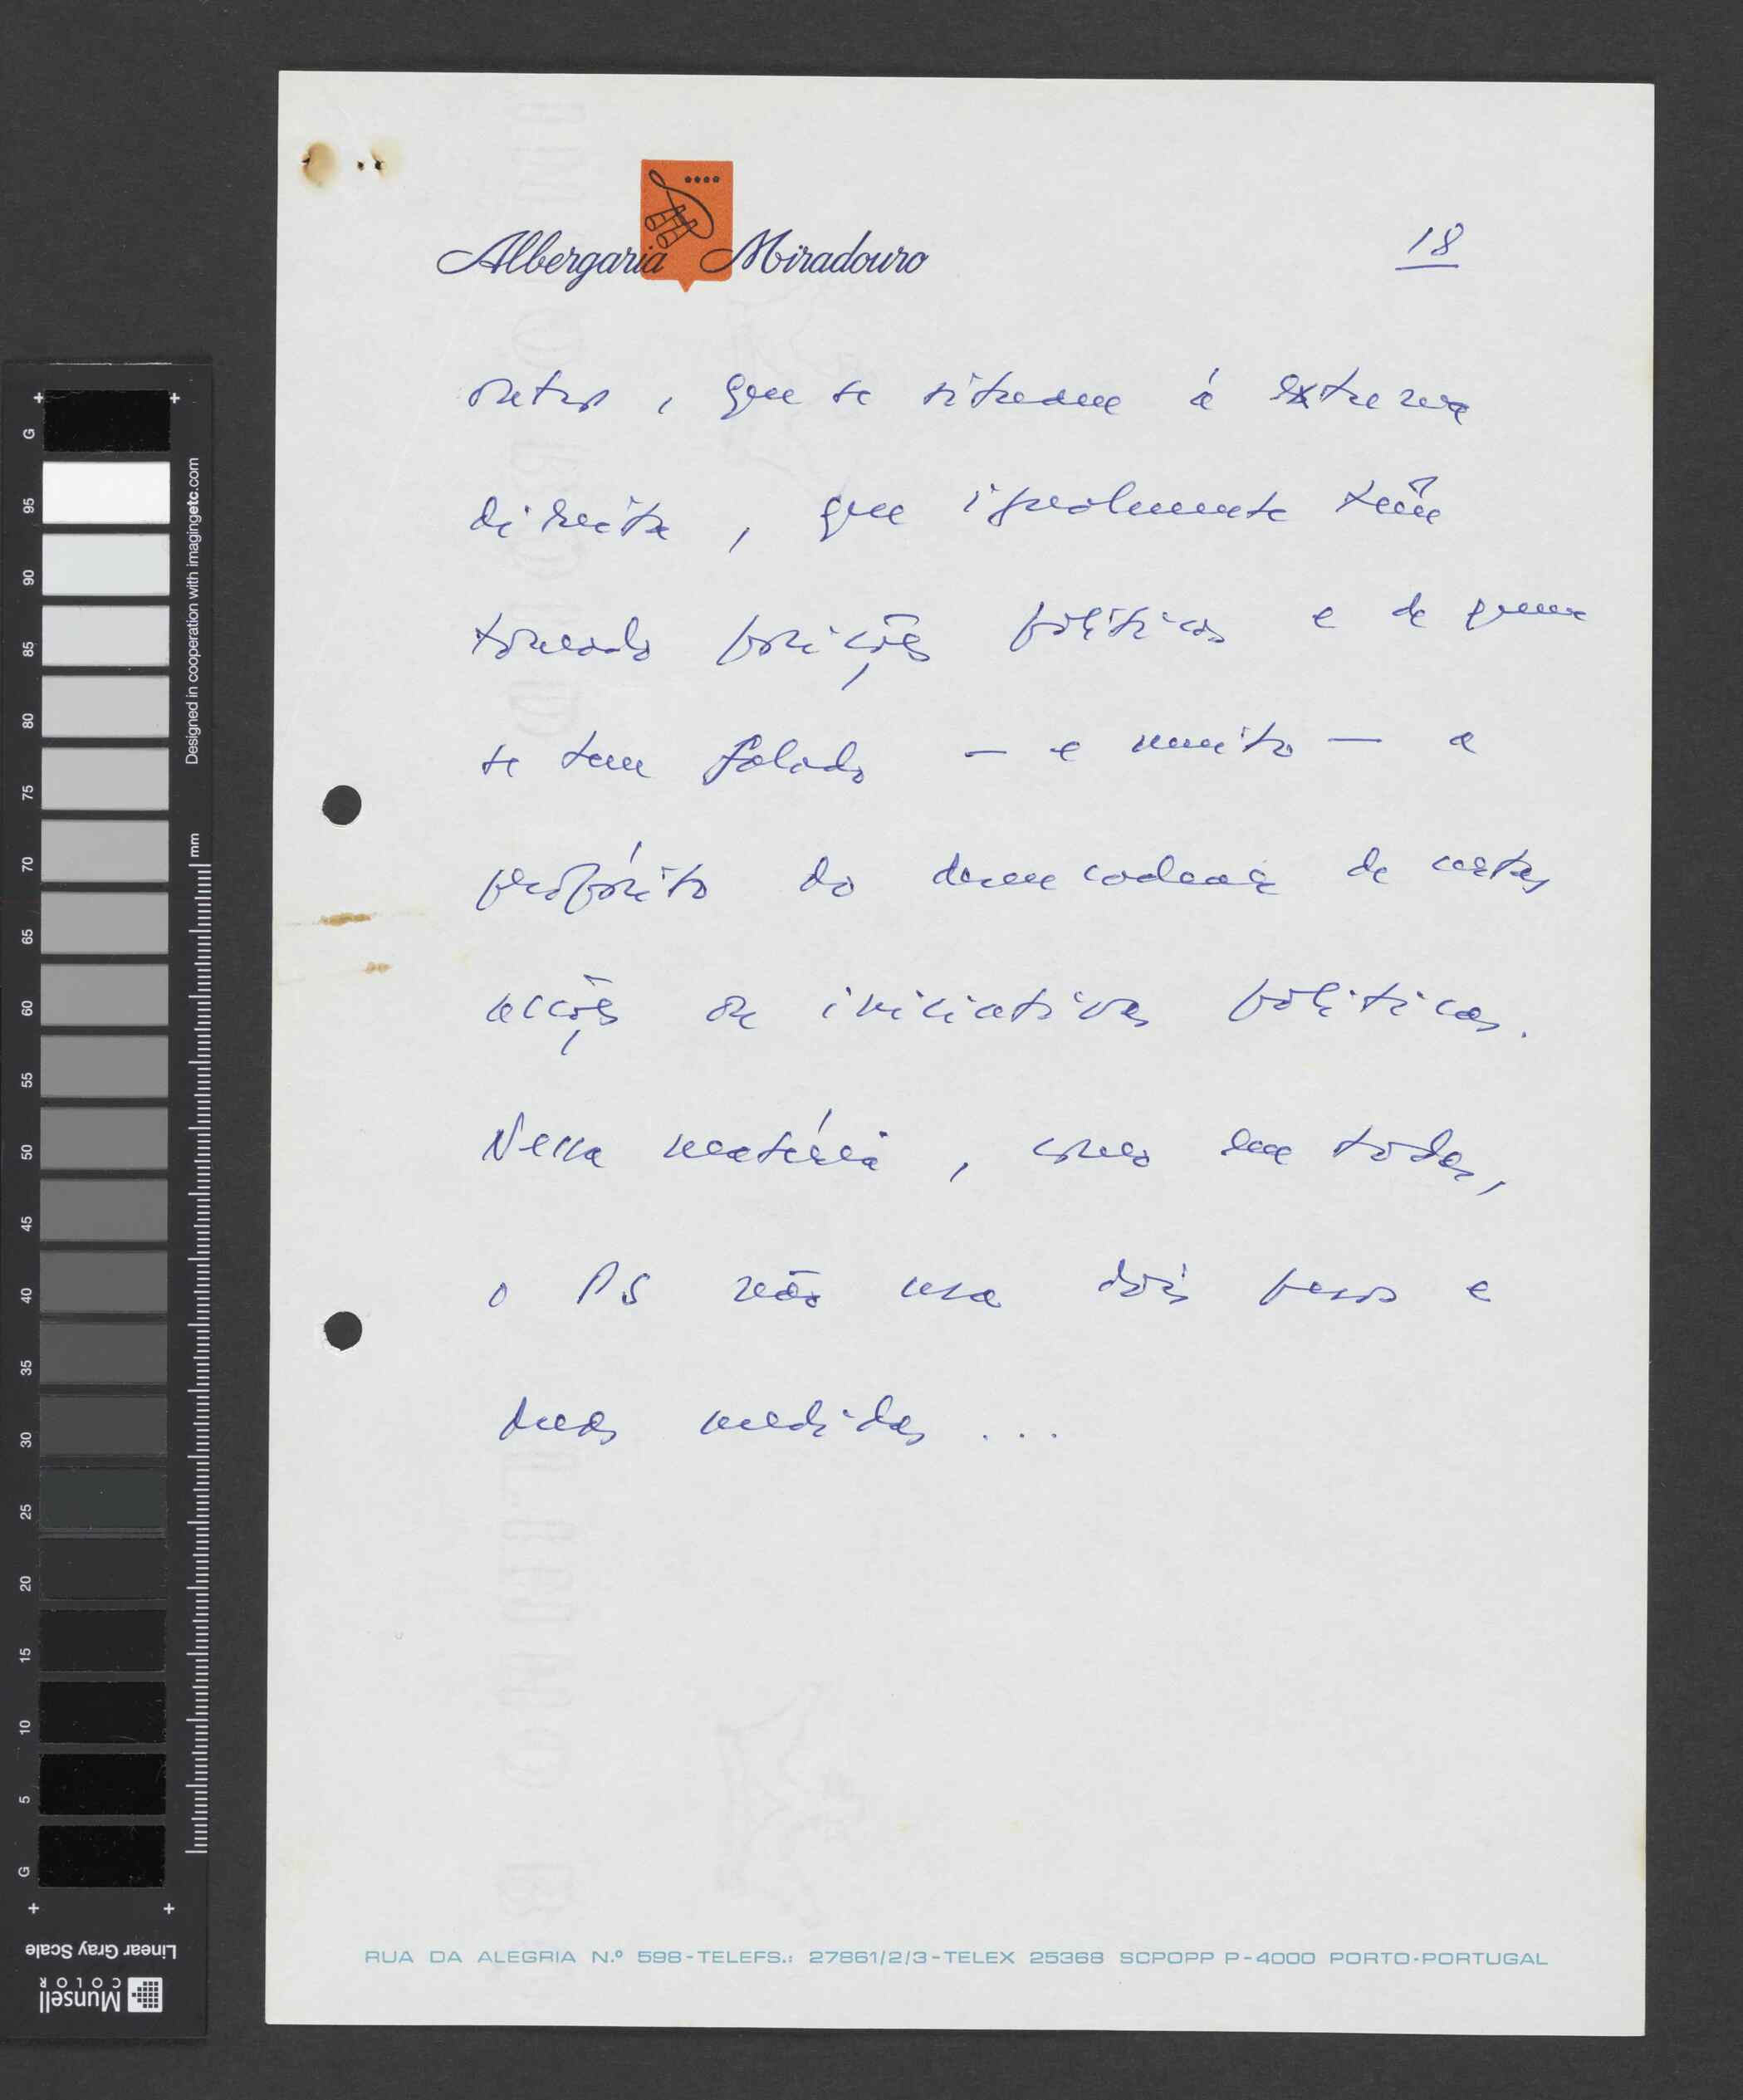 Albergaria Miradouro
18
outros, que se situam à extrema
direita, que igualmente têm
tomado posições políticas e de quem
se tem falado — e muito — a
propósito do desencadear de certas
acções ou iniciativas políticas.
Nessa matéria, como em todas,
o PS não usa dois pesos e
duas medidas ...
RUA DA ALEGRIA N.º 598-TELEFS.: 27861/2/3-TELEX 25368 SCPOPP P-4000 PORTO-PORTUGAL
G 95 90 85 80 75 70 65 60 55 50 45 40 35 30 25 20 15 10 5 G
Designed in cooperation with imagingetc.com
mm
Linear Gray Scale
Munsell
COLOR